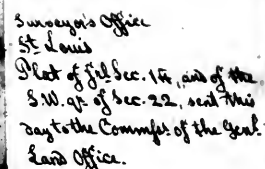 Surveyor's Office
St Louis
Plat of frl Sec. 14, and of the
S.W. qr of Sec. 22, sent this
day to the Commsr of the Genl.
Land Office.